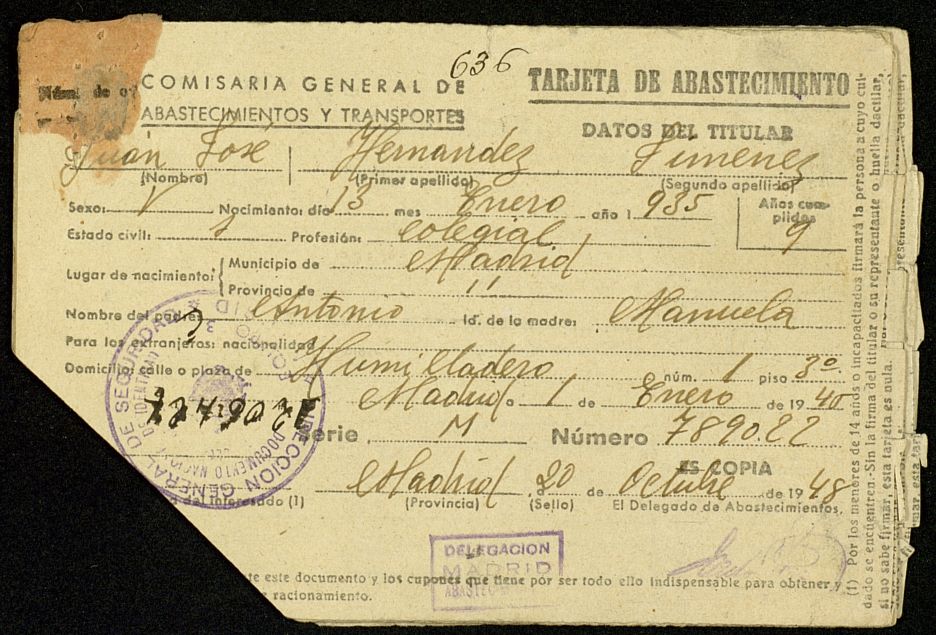 636
COMISARIA GENERAL DE
ABASTECIMIENTOS Y TRANSPORTES
TARJETA DE ABASTECIMIENTO
DATOS DEL TITULAR
Juan José Hernandez Jimenez
(Nombre) (Primer apellido) (Segundo apellido)
Sexo: V Nacimiento: día 13 mes Enero año 1 935 Años cum-
plidos
9
Estado civil: S Profesión: Colegial
Lugar de nacimiento: Municipio de Madrid
Provincia de "
Nombre del padre: Antonio Id. de la madre: Manuela
Para los extranjeros: nacionalidad
Domicilio: calle o plaza de Humilladero núm. 1 piso 3º
Madrid a 1 de Enero de 19 40
Serie M Número 789022
ES COPIA
Madrid, a 20 de Octubre de 19 48
del interesado (1) (Provincia) (Sello) El Delegado de Abastecimientos,
DIRECCION GENERAL DE SEGURIDAD
DOCUMENTO NACIONAL
DE IDENTIDAD
DELEGACION
MADRID
te este documento y los cupones que tiene por ser todo ello indispensable para obtener
racionamiento.
(1) Por los menores de 14 años o incapacitados firmará la persona a cuyo cui-
dado se encuentren.-Sin la firma del titular o su representante o huella dactilar,
si no sabe firmar, esta tarjeta es nula.